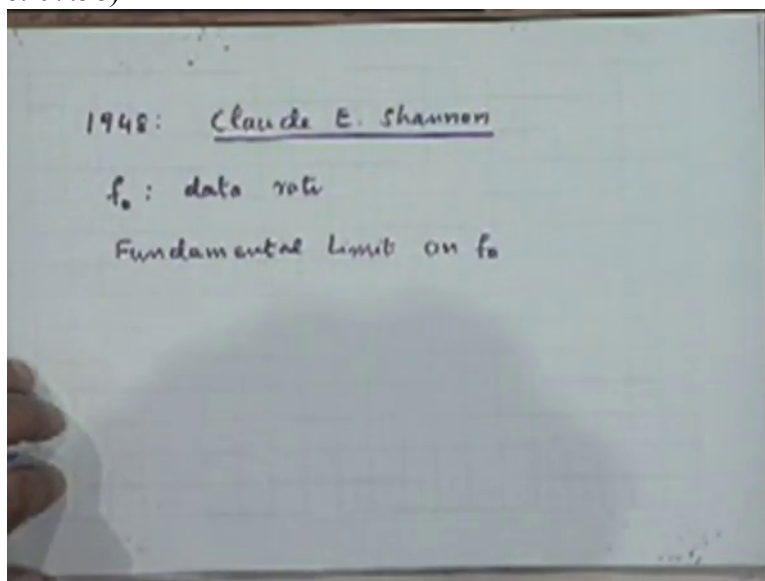 1948: Claude E. Shannon
f₀: data rate
Fundamental Limit on f₀